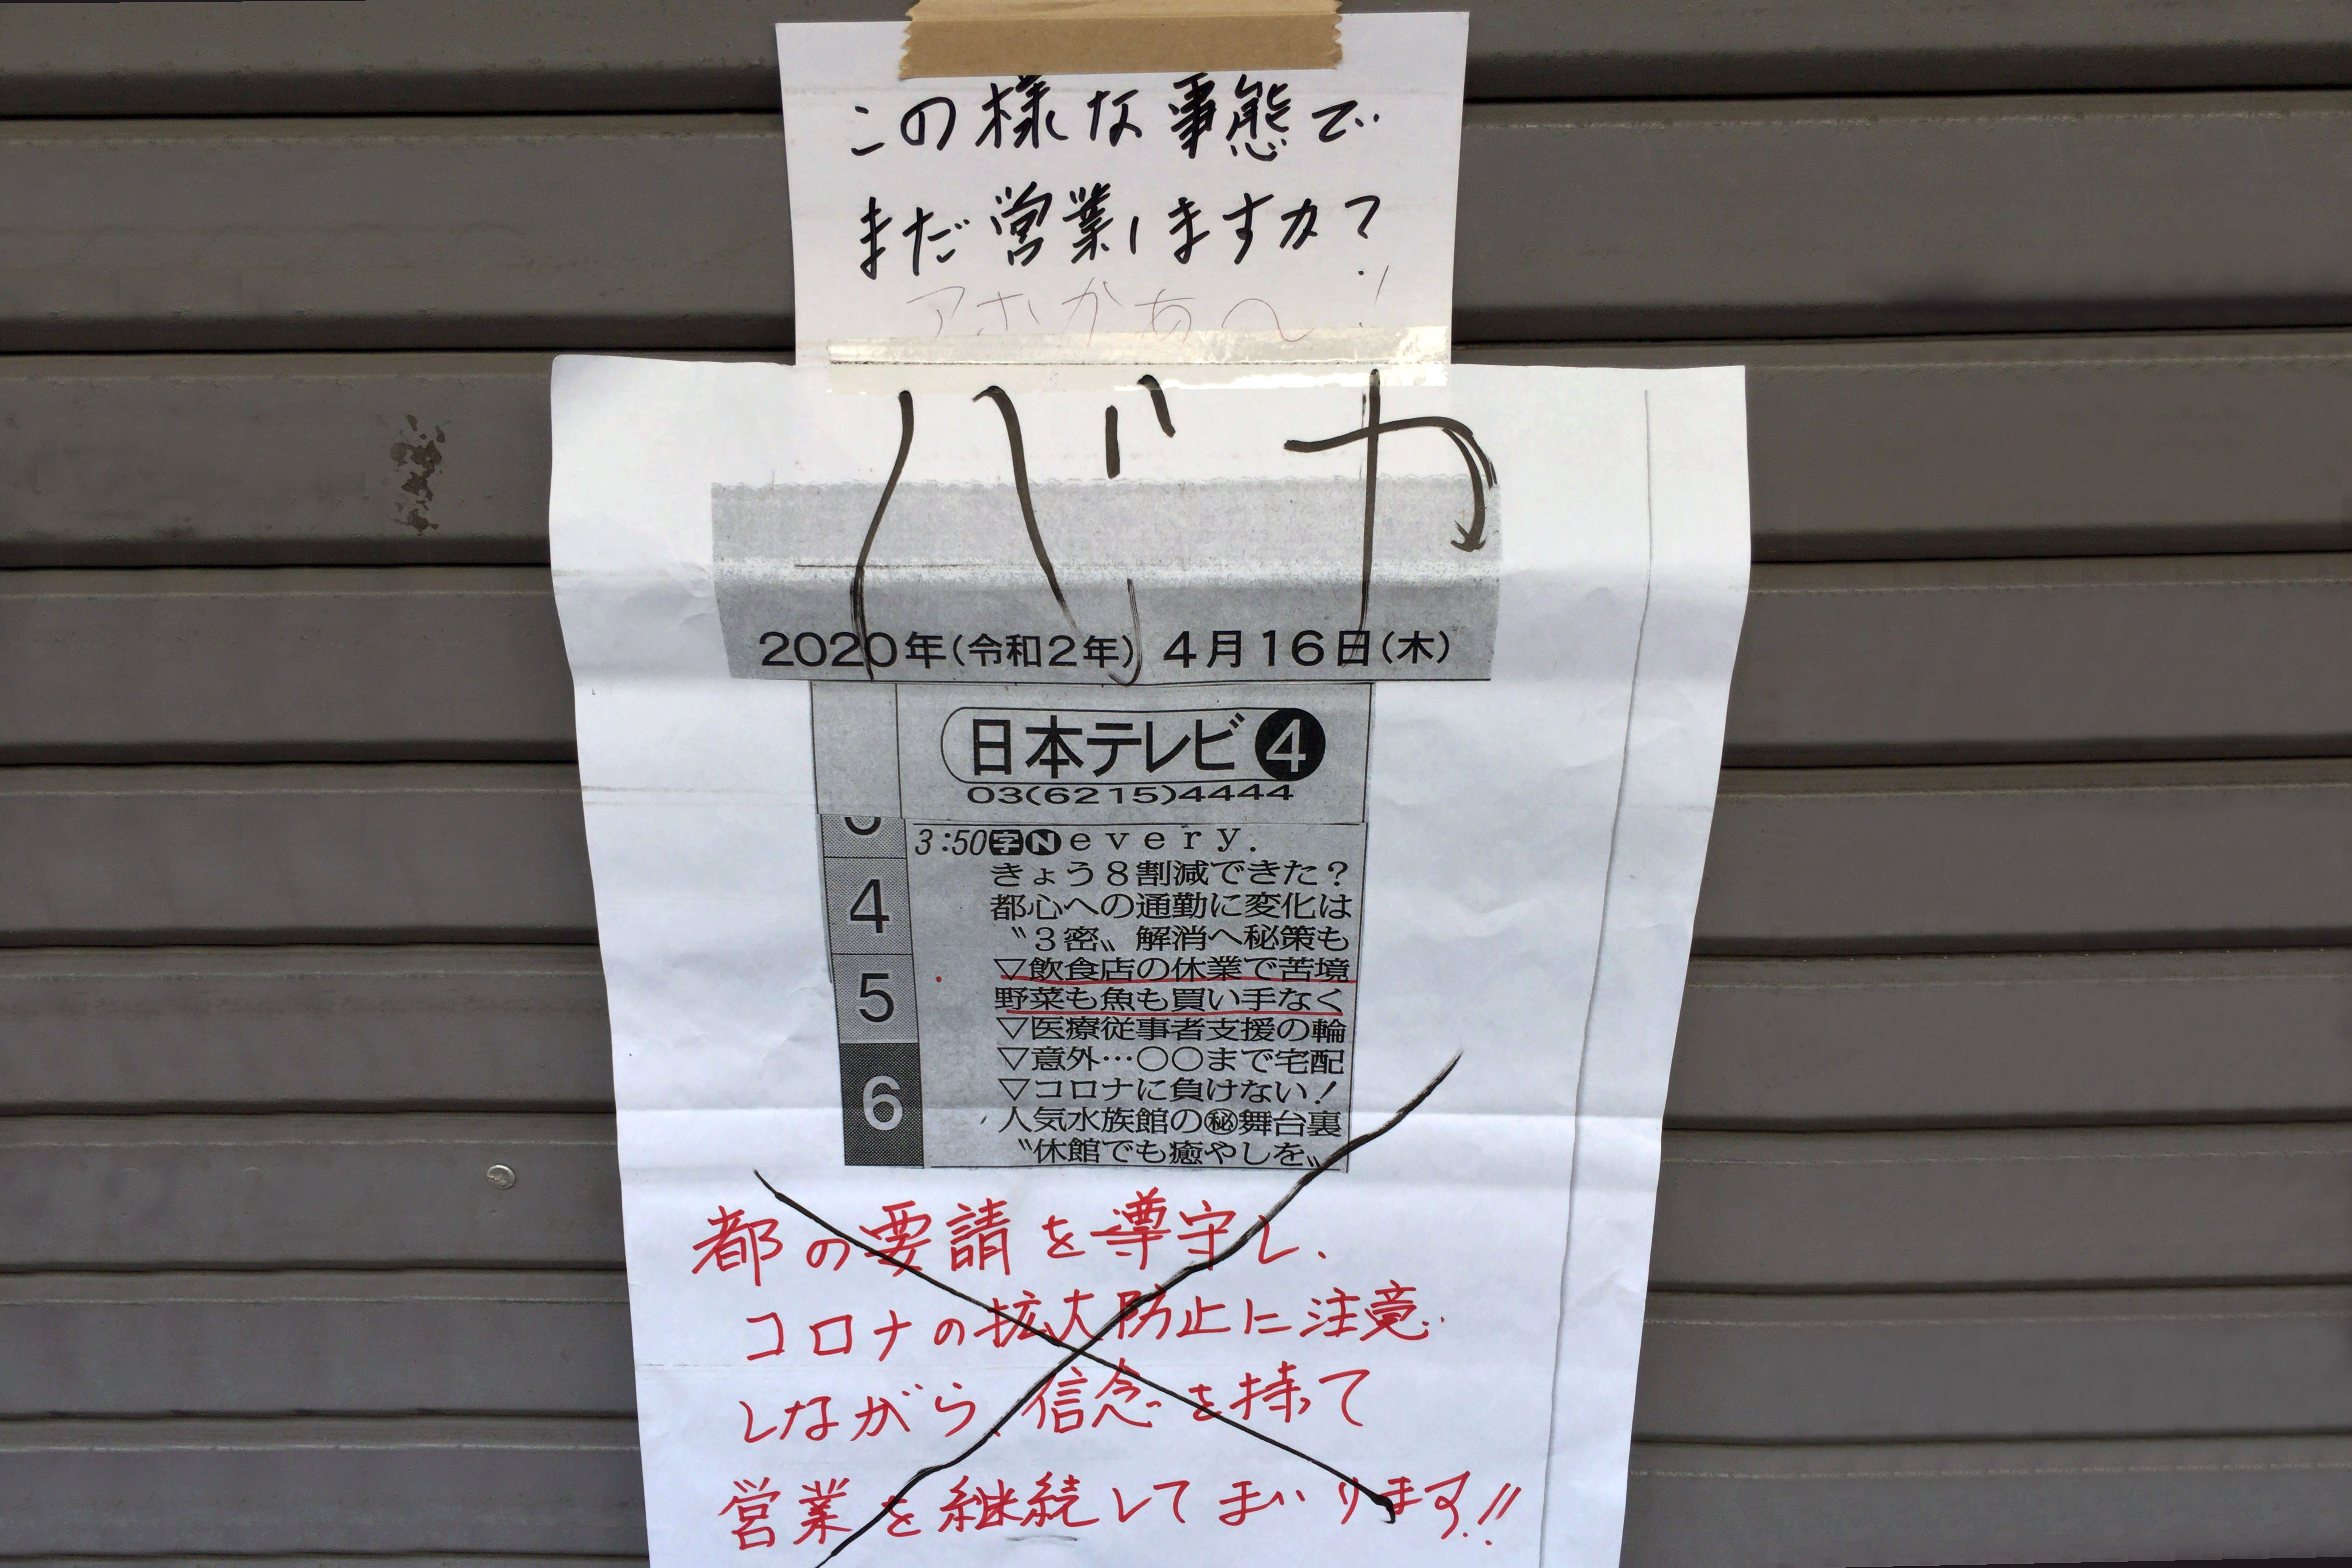 この様な事態で
まだ営業しますか?
アホかあ〜!
バカ
2020年(令和2年) 4月16日(木)
日本テレビ4
03(6215)4444
3:50字Nevery.
きょう8割減できた?
4
都心への通勤に変化は
〝3密〟解消へ秘策も
▽飲食店の休業で苦境
5
野菜も魚も買い手なく
▽医療従事者支援の輪
▽意外…〇〇まで宅配
▽コロナに負けない!
6
人気水族館の㊙舞台裏
〝休館でも癒やしを〟
都の要請を遵守し、
コロナの拡大防止に注意
しながら、信念を持って
営業を継続してまいります!!